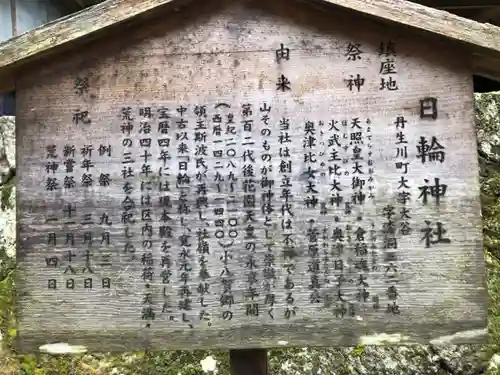 日輪神社
鎮座地
丹生川町大字大谷
字漆洞三六二番地
祭神
天照皇大御神・倉稲魂大神
火武主比大神・奥津日子大神
奥津比女大神・菅原道真公
由来
当社は創立年代は不詳であるが
山そのものが御神体として崇敬が厚く
第百二代後花園天皇の永享年間
(皇紀二〇八九~二一〇〇)
(西暦一四二九~一四四〇)小八賀郷の
領主斯波氏が再興し社領を奉献した。
中古以来日輪宮と称し、寛永元年再建し、
宝暦四年には現本殿を再営した。
明治四十年には区内の稲荷・天満・
荒神の三社を合祀した。
祭祀
例祭 九月三日
祈年祭 三月十八日
新嘗祭 十一月十八日
荒神祭 一月四日